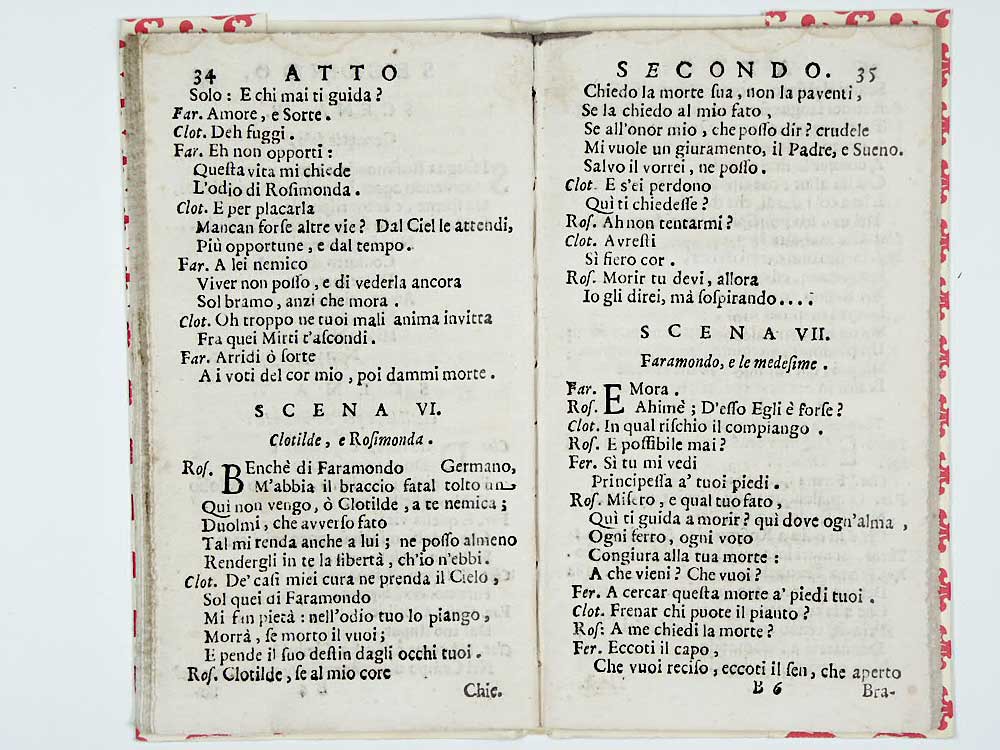 34 ATTO
Solo : E chi mai ti guida ?
Far. Amore, e Sorte.
Clot. Deh fuggi.
Far. Eh non opporti :
Queſta vita mi chiede
L'odio di Roſimonda.
Clot. E per placarla
Mancan forſe altre vie? Dal Ciel le attendi,
Più opportune, e dal tempo.
Far. A lei nemico
Viver non poſſo, e di vederla ancora
Sol bramo, anzi che mora.
Clot. Oh troppo ne tuoi mali anima invitta
Fra quei Mirti t'aſcondi.
Far. Arridi ò ſorte
A i voti del cor mio, poi dammi morte.
SCENA VI.
Clotilde, e Roſimonda.
Roſ. BEnchè di Faramondo Germano,
M'abbia il braccio fatal tolto un
Qui non vengo, ò Clotilde, a te nemica;
Duolmi, che avverſo fato
Tal mi renda anche a lui; ne poſſo almeno
Rendergli in te la libertà, ch'io n'ebbi.
Clot. De' caſi miei cura ne prenda il Cielo,
Sol quei di Faramondo
Mi fan pietà: nell'odio tuo lo piango,
Morrà, ſe morto il vuoi;
E pende il ſuo deſtin dagli occhi tuoi.
Roſ. Clotilde, ſe al mio core
Chie.
SECONDO. 35
Chiedo la morte ſua, non la paventi,
Se la chiedo al mio fato,
Se all'onor mio, che poſſo dir? crudele
Mi vuole un giuramento, il Padre, e Sueno.
Salvo il vorrei, ne poſſo.
Clot. E s'ei perdono
Quì ti chiedeſſe?
Roſ. Ah non tentarmi?
Clot. Avreſti
Sì fiero cor.
Roſ. Morir tu devi, allora
Io gli direi, mà ſoſpirando....
SCENA VII.
Faramondo, e le medeſime.
Far. E Mora.
Roſ. Ahimè; D'eſſo Egli è forſe?
Clot. In qual riſchio il compiango.
Roſ. E poſſibile mai?
Fer. Sì tu mi vedi
Principeſſa a' tuoi piedi.
Roſ. Miſero, e qual tuo fato,
Quì ti guida a morir? quì dove ogn'alma,
Ogni ferro, ogni voto
Congiura alla tua morte:
A che vieni? Che vuoi?
Fer. A cercar queſta morte a' piedi tuoi.
Clot. Frenar chi puote il pianto?
Roſ: A me chiedi la morte?
Fer. Eccoti il capo,
Che vuoi reciſo, eccoti il ſen, che aperto
B 6 Bra-